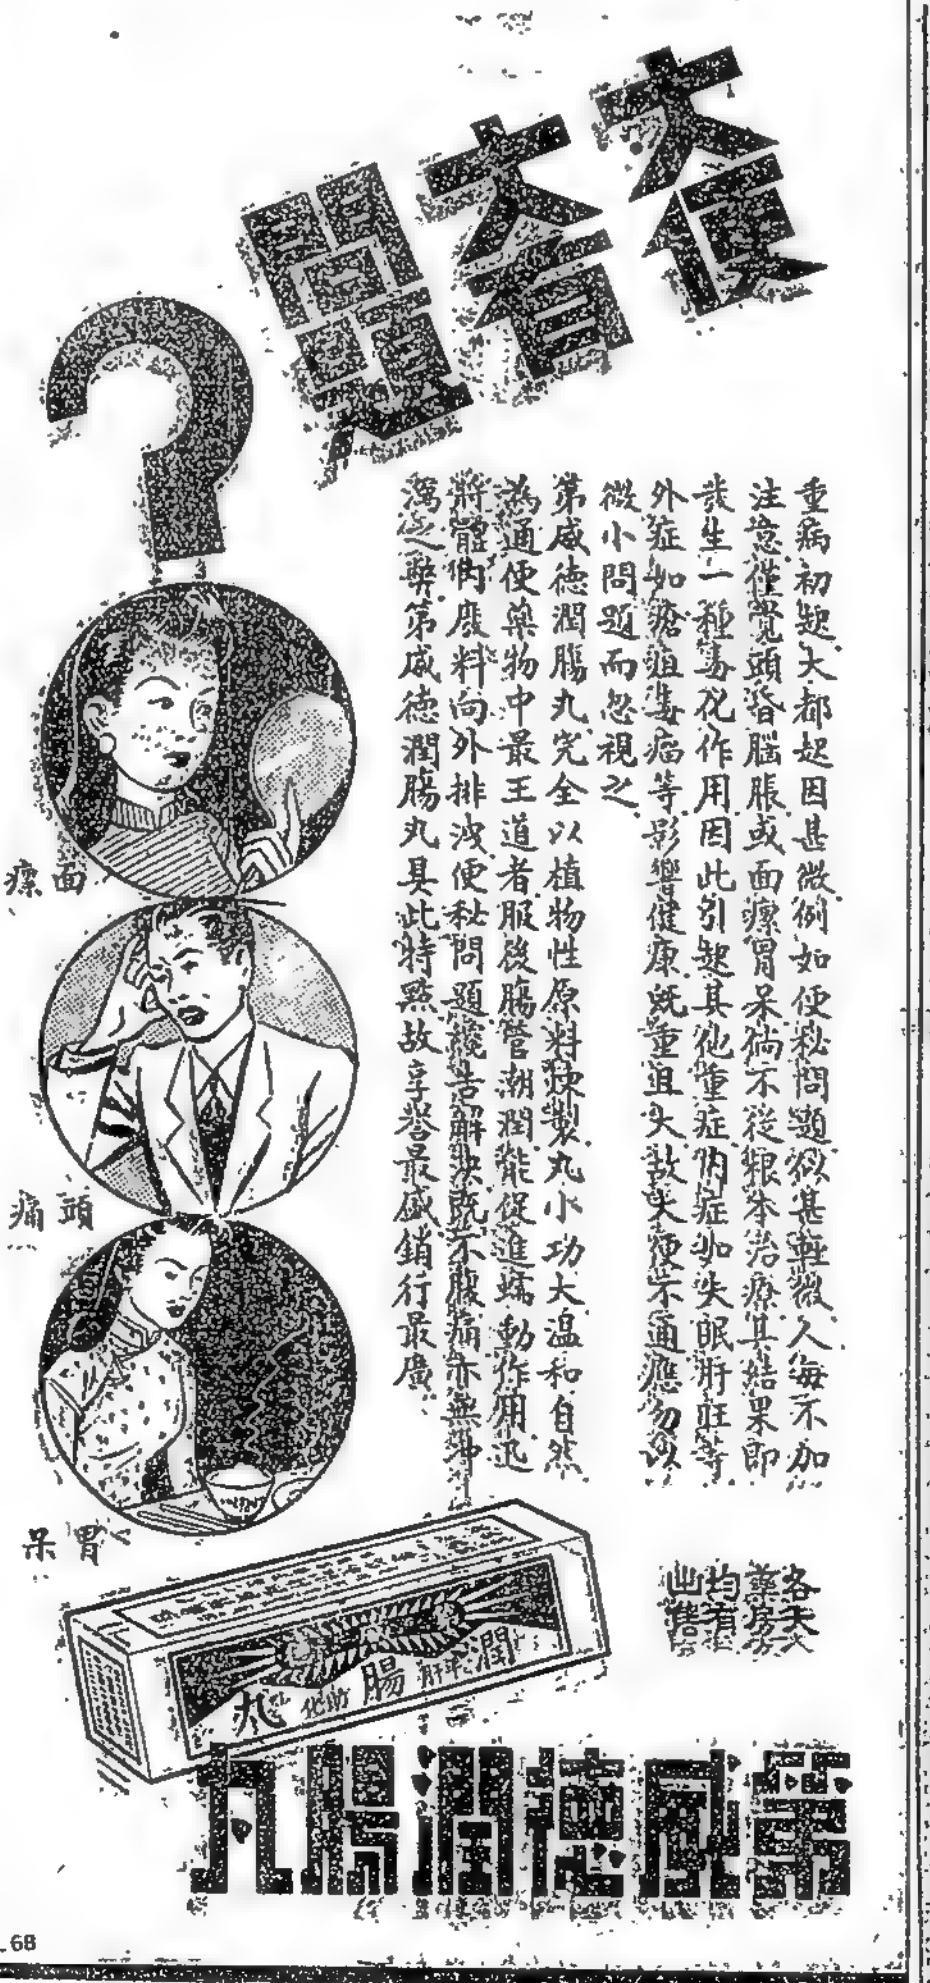 大便
大有
問題
?
重病初起大都起因甚微例如便秘問題似甚輕微人每不加
注意僅覺頭昏腦脹或面瘰胃呆倘不從根本治療其結果即
發生一種毒化作用因此引起其他重症內症如失眠肝旺等
外症如瘡疽毒瘤等影響健康既重且大故大便不通應勿以
微小問題而忽視之
第威德潤腸丸完全以植物性原料煉製丸小功大溫和自然
為通便藥物中最王道者服後腸管潮潤能促進蠕動作用迅
將體內廢料向外排洩便秘問題纔告解決既不腹痛亦無
瀉之弊第威德潤腸丸具此特點故享譽最盛銷行最廣
面瘰
頭痛
胃呆
各大
藥房
均有
出售
潤腸丸
平肝
助化
第威德潤腸丸
68